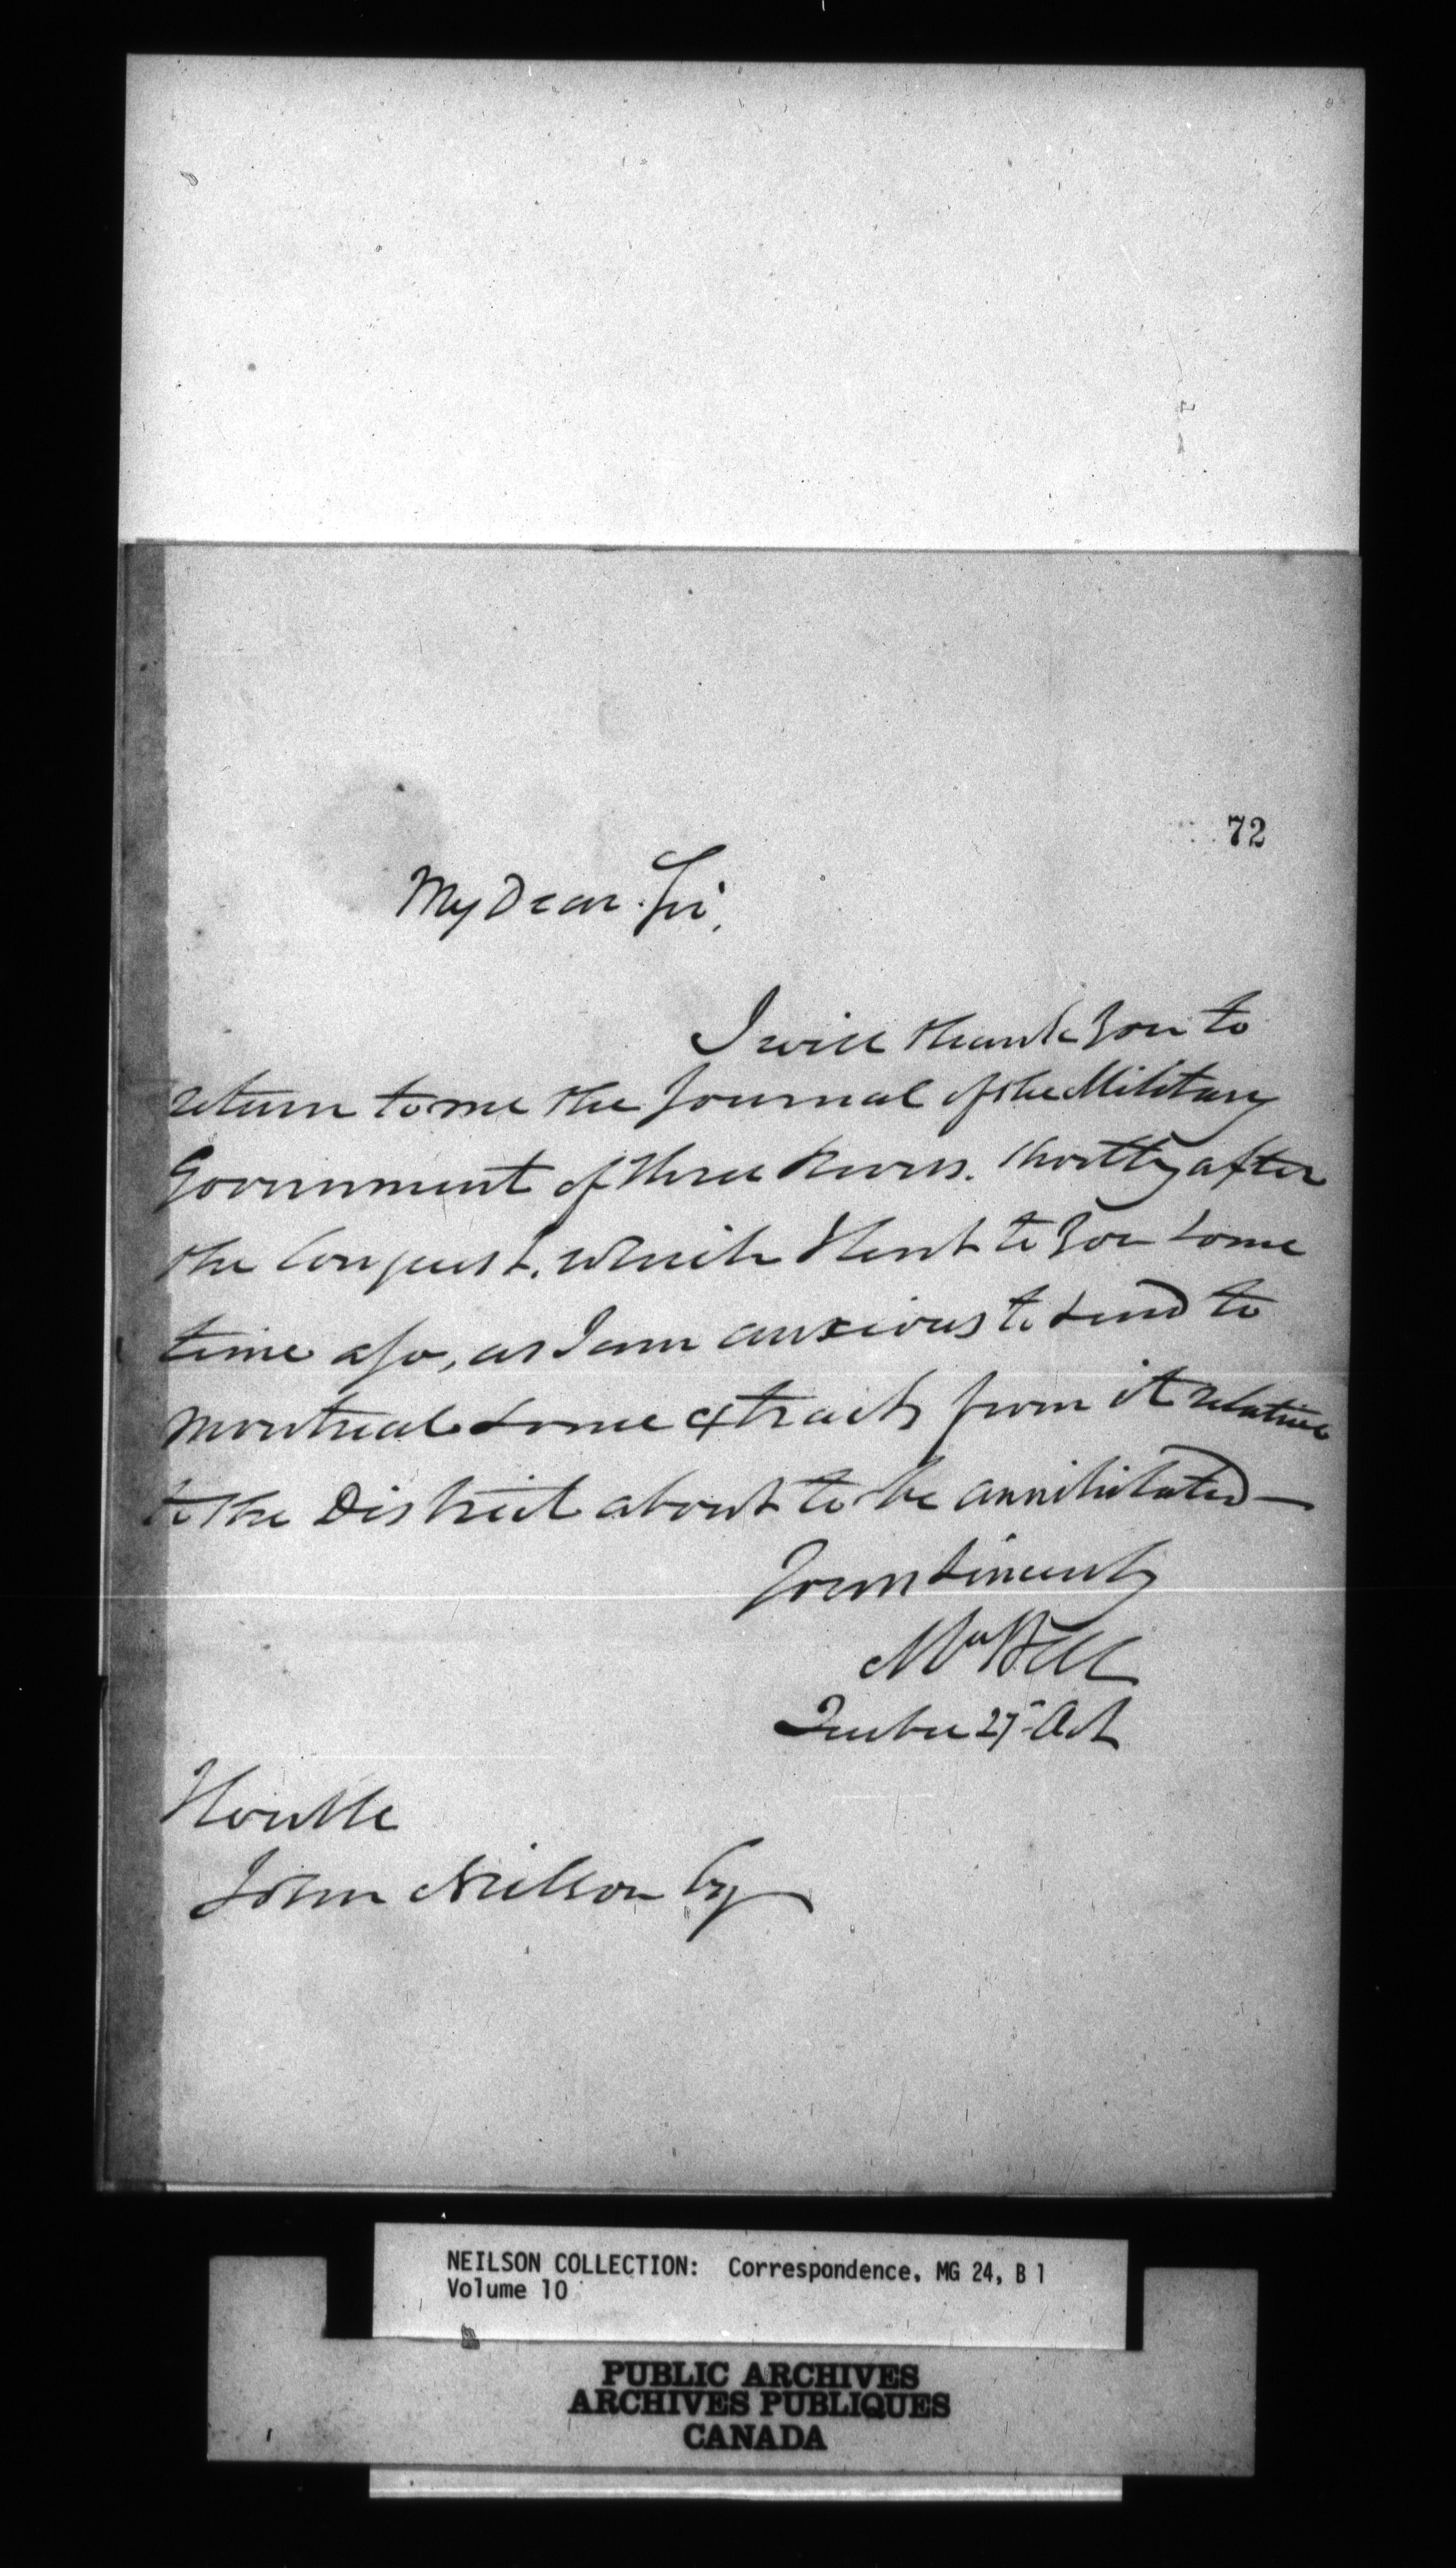 72
My Dear Sir,
I will thank you to
return to me the Journal of the Military
Government of Three Rivers. Shortly after
the Conquest, which I lent to you some
time ago, as I am anxious to send to
Montreal some extracts from it relative
to the District about to be annihilated —
Yours Sincerely
Mw Bell
Quebec 27 Oct
Honble
John Neilson Esq
NEILSON COLLECTION: Correspondence. MG 24, B 1
Volume 10
PUBLIC ARCHIVES
ARCHIVES PUBLIQUES
CANADA